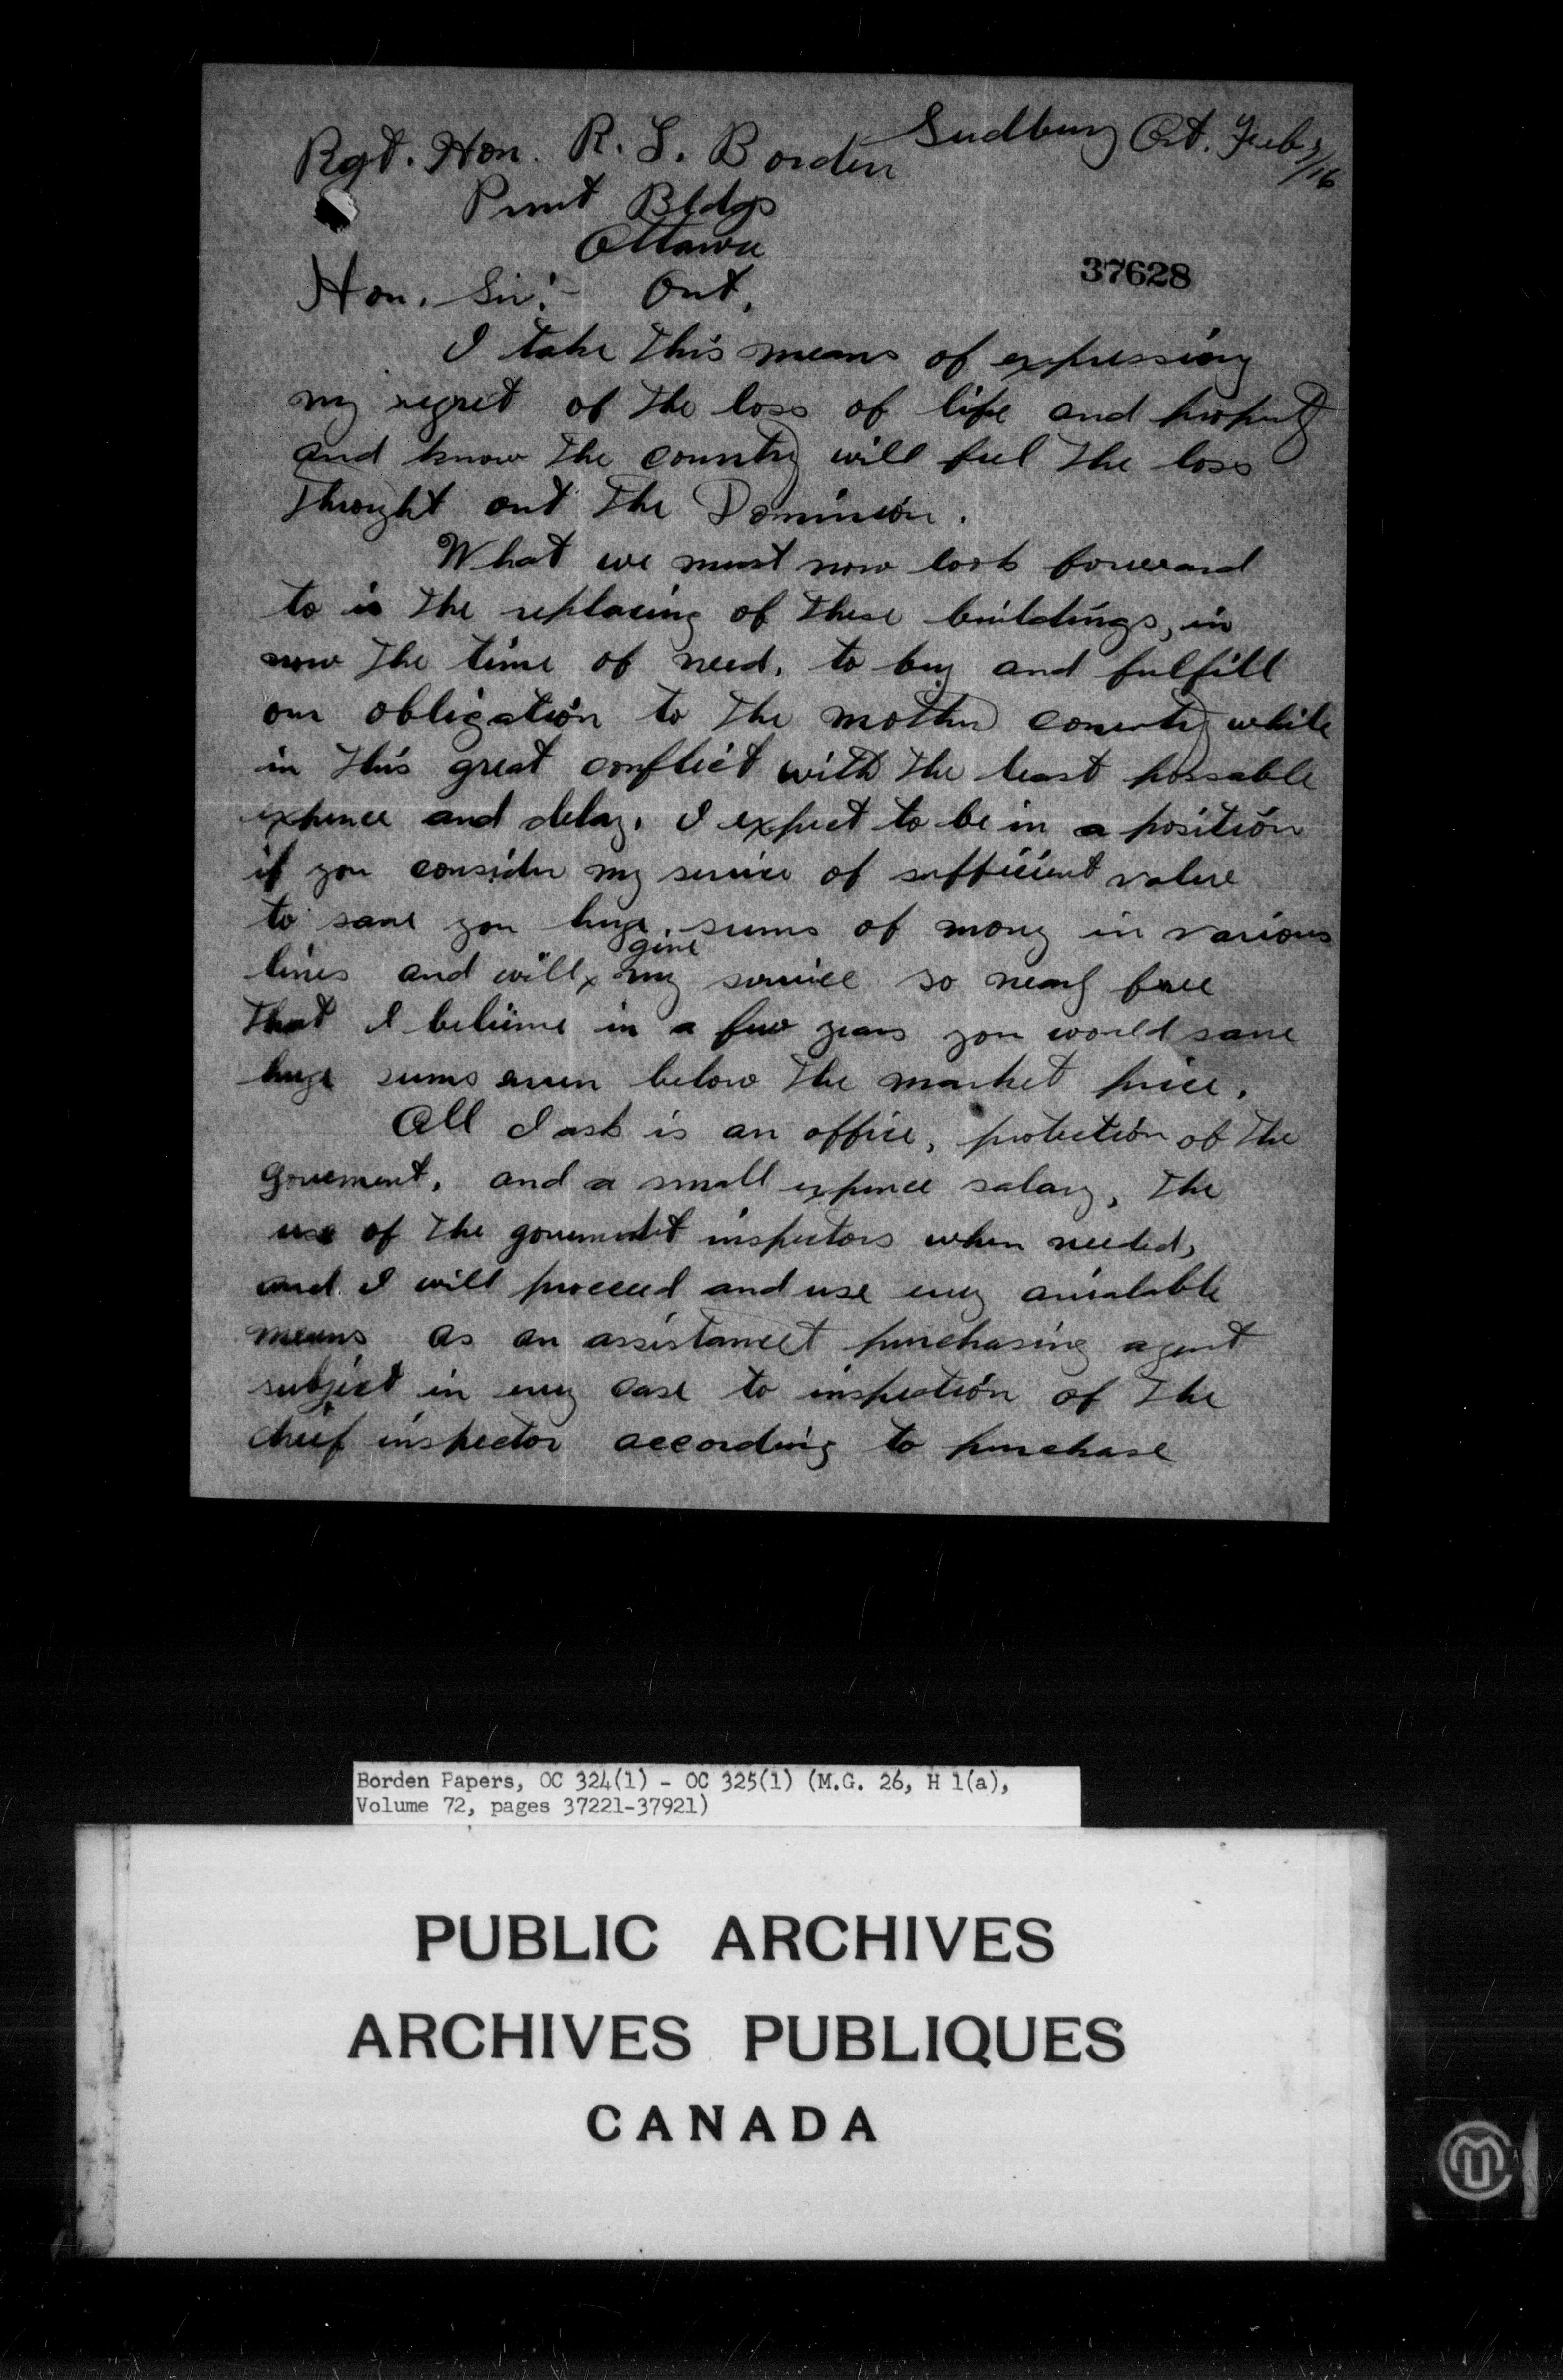 Sudbury Ont. Feb. 3/16
Rgt. Hon. R. L. Borden
Bldgs
Ottawa
Ont.
37628
Hon. Sir:-
I take this means of expressing
my regret of the loss of life and property
and know the country will feel the loss
throught out the Dominion.
What we must now look forward
to is the replacing of these buildings, in
now the time of need, to buy and fulfill
our obligation to the mother country while
in this great conflict with the least possable
expence and delay. I expect to be in a position
if you consider my service of sufficient value
to save you huge sums of mony in various
lines and will x give my service so nearly free
that I belieive in a few years you would save
huge sums even below the market price.
All I ask is an office, protection of the
goverment, and a small expence salary, the
use of the government inspectors when needed,
and I will proceed and use every available
means as an assistancet purchasing agent
subject in every case to inspection of the
cheif inspector according to purchase
Borden Papers, OC 324(1) - OC 325(1) (M.G. 26, H 1(a),
Volume 72, pages 37221-37921)
PUBLIC ARCHIVES
ARCHIVES PUBLIQUES
CANADA